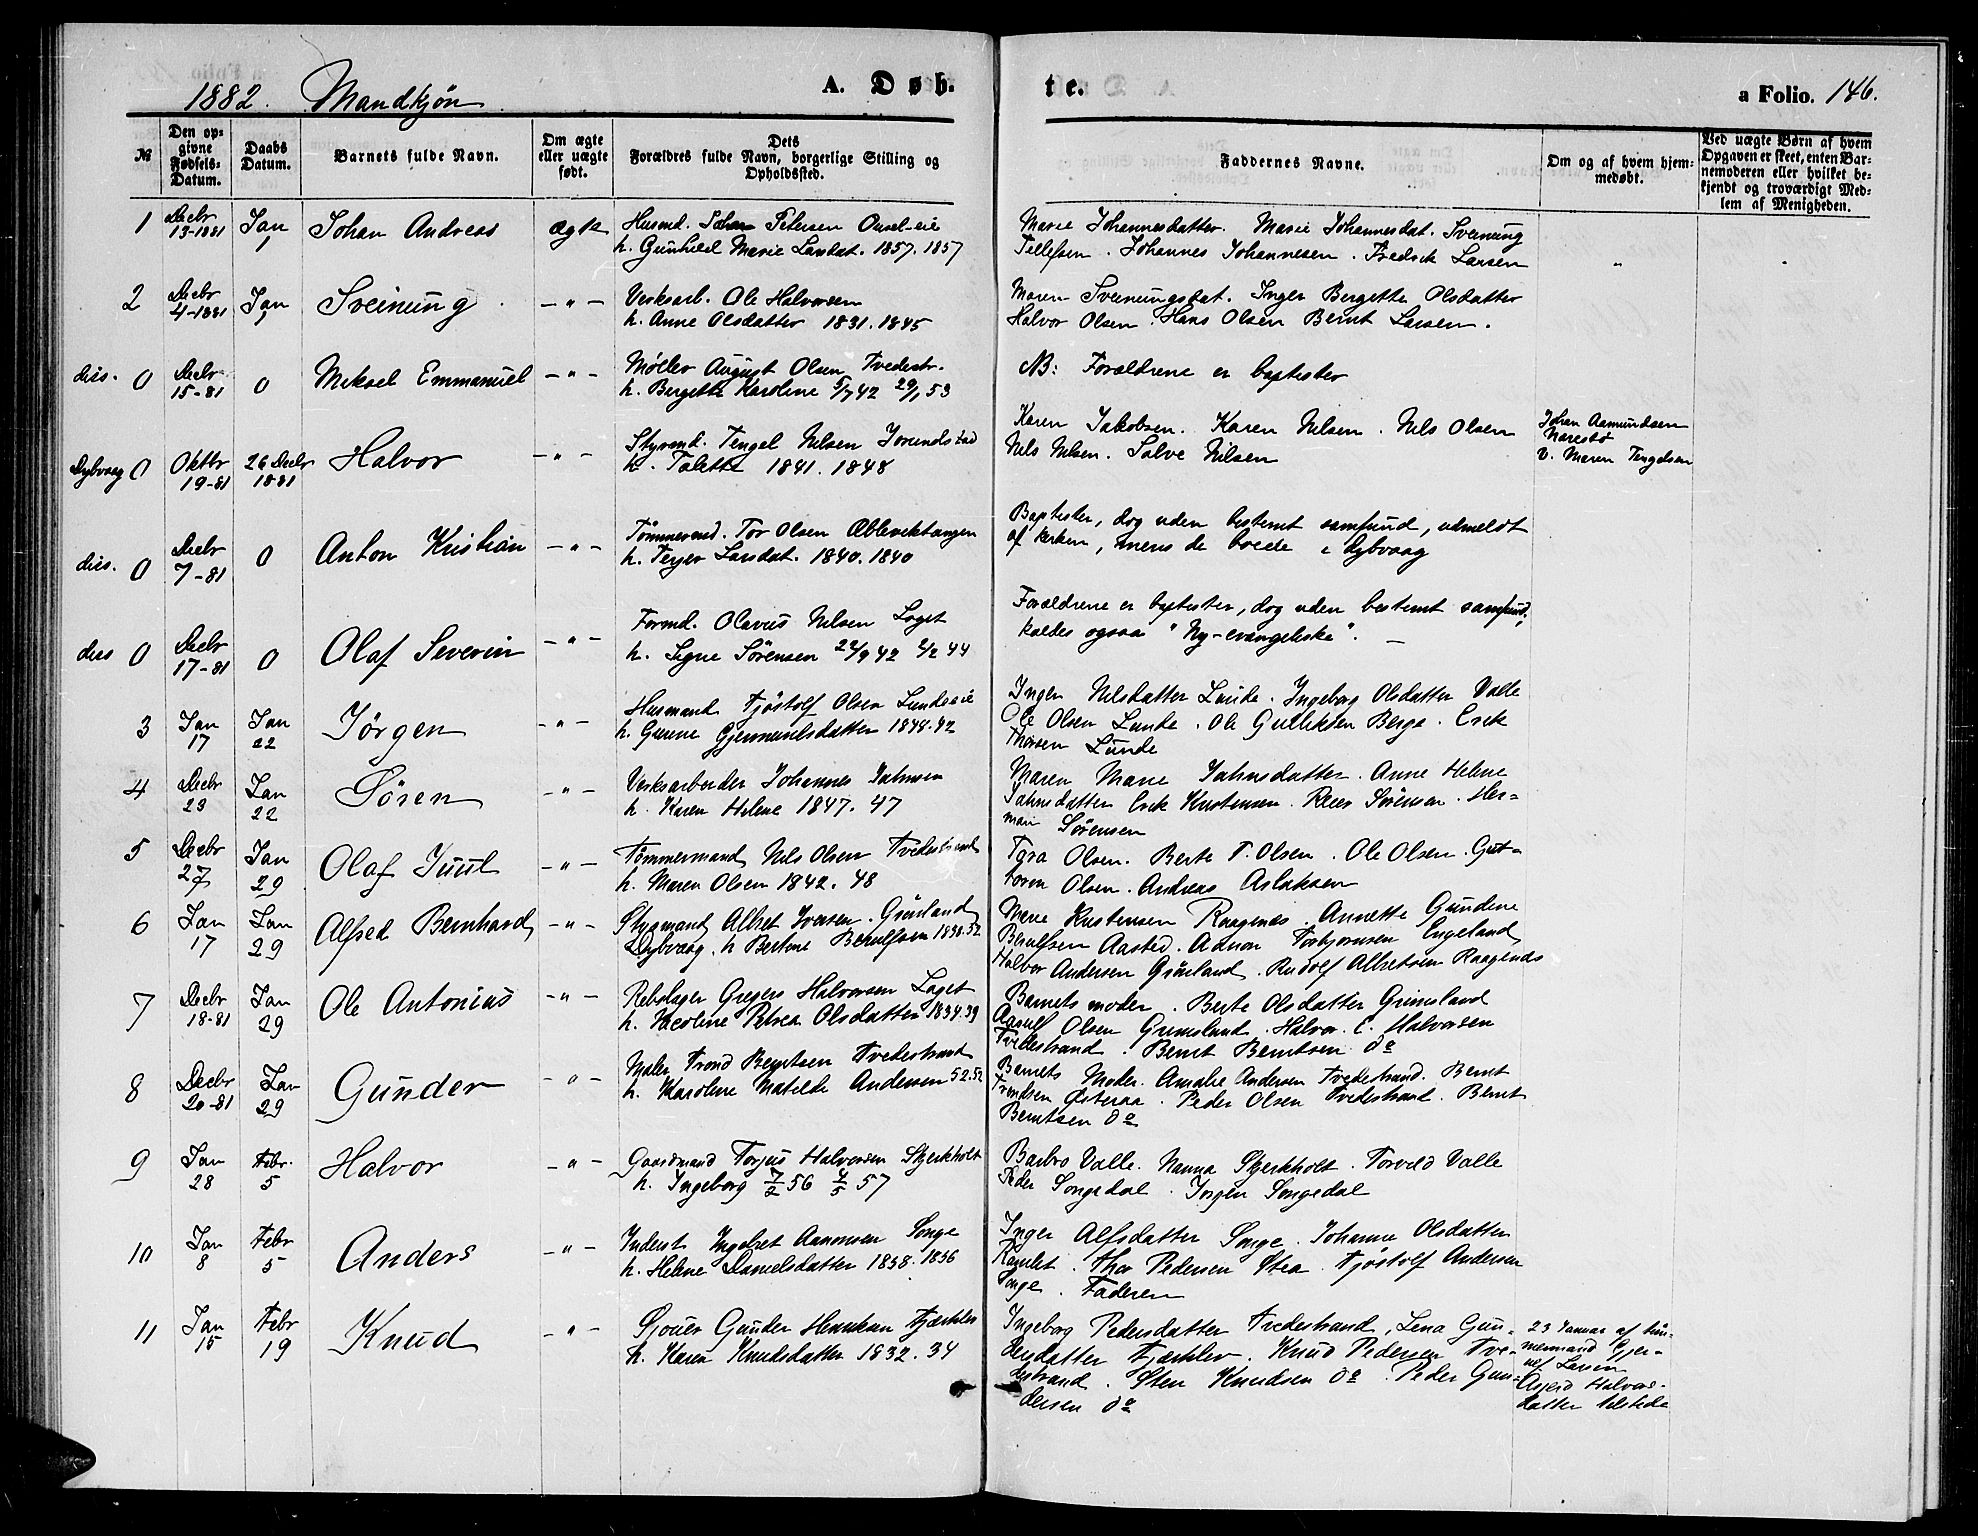 1882. Mandkjøn
A. Døb-
te.
a Folio. 146.
№
Den op-
givne
Fødsels-
Datum.
Daabs
Datum.
Barnets fulde Navn.
Om ægte
eller uægte
født.
Dets
Forældres fulde Navn, borgerlige Stilling og
Opholdssted.
Faddernes Navne.
Om og af hvem hjem-
medøbt.
Ved uægte Børn af hvem
Opgaven er skeet, enten Bar-
nemoderen eller hvilket be-
kjendt og troværdigt Med-
lem af Menigheden.
1 Decbr 13-1881 Jan 1 Johan Andreas ægte
Husmd. Johan Petersen
h. Gunhild Marie Larsdat. 1857. 1857
Marie Johannesdatter. Marie Johannesdat. Sveinung
Tellefsen. Johannes Johannesen. Fredrik Larsen
2 Decbr 4-1881 Jan 1 Sveinung -"-
Verksarb. Ole Halvorsen
h. Anne Olsdatter 1831. 1845
Maren Sveinungsdat. Inger Bergette Olsdatter
Halvor Olsen. Hans Olsen Bernt Larsen.
diss. 0 Decbr 15-81 0 Mikael Emmanuel -"-
Møller August Olsen Tvedestr.
h. Bergette Karoline 5/7 42 29/1 53
NB: Forældrene er baptister
Dybvaag 0 Oktbr 19-81 26 Decbr 1881 Halvor -"-
Styrmd. Tengel Nilsen Jorundstad
h. Talette 1841. 1848
Karen Jakobsen. Karen Nilsen. Nils Olsen
Nils Nilsen. Salve Nilsen
Johan Aamundsen
Narestø
v. Maren Tengelsen
diss. 0 Decbr 7-81 0 Anton Kristian -"-
Tømmermd. Tor Olsen Æblevektangen
h. Terjer Larsdat. 1840. 1840
Baptister, dog uden bestemt samfund, udmeldt
af kirken, mens de boede i Dybvaag
diss 0 Decbr 17-81 0 Olaf Severin -"-
Formd. Olavus Nilsen Laget
h. Signe Sørensen 22/9 42 2/2 44
Forældrene er baptister, dog uden bestemt samfund,
kaldes ogsaa "Ny-evangeliske". —
3 Jan 17 Jan 22 Jørgen -"-
Husmand Tjøstolf Olsen Lundeeie
h. Gunne Gjermundsdatter 1848. 42
Inger Nilsdatter Lunde. Ingeborg Olsdatter Valle
Ole Olsen Lunde. Ole Gulliksen Berge. Erik
Thorsen Lunde
4 Decbr 23 Jan 22 Søren -"-
Verksarbeider Johannes Jahnsen
h. Karen Helene 1847. 47
Maren Marie Jahnsdatter. Anne Helene
Jahnsdatter Erik Kristensen. Reier Sørensen. Her-
man Sørensen
5 Decbr 27 Jan 29 Olaf Juul -"-
Tømmermand Nils Olsen Tvedestrand
h. Maren Olsen 1842. 48
Tara Olsen. Berte T. Olsen. Ole Olsen. Gut-
torm Olsen. Andreas Aslaksen
6 Jan 17 Jan 29 Alfred Bernhard -"-
Styrmand Albret Iversen. Grønland
Dybvaag. h Bertine Berulfsen 1850. 52
Marie Kristensen Raagenes. Annette Gundine
Berulfsen Aasted. Aanon Torbjørnsen Engeland
Halvor Andersen Grønland. Rudolf Albretsen Raagenes
7 Decbr 18-81 Jan 29 Ole Antonius -"-
Rebslager Gregers Halvorsen Laget
h. Nicoline Petrea Olsdatter 1834. 39
Barnets moder. Berte Olsdatter Grimsland
Aasulf Olsen Grimsland. Halvor C. Halvorsen
Tvedestrand. Bernt Berntsen do
8 Decbr 20-81 Jan 29 Gunder -"-
Maler Trond Berntsen Tvedestrand
h. Karoline Matilde Andersen 52. 52
Barnets Moder. Amalie Andersen Tvedestrand. Bernt
Trondsen Østeraa. Peder Olsen Tvedestrand. Bernt
Berntsen do
9 Jan 28 Febr. 5 Halvor -"-
Gaardmand Torjus Halvorsen Skjerkholt
h. Ingeborg 7/2 56 4/5 57
Barbro Valle. Nanna Skjerkholt. Torvild Valle
Peder Songedal. Jørgen Songedal
10 Jan 8 Febr 5 Anders -"-
Inderst Ingebret Aanonsen Songe
h. Helene Danielsdatter 1858. 1856
Inger Alfsdatter Songe. Johanne Olsdatter
Ramlet. Thor Pedersen Stea. Tjøstolf Andersen
Songe. Faderen
11 Jan 15 Febr 19 Knud -"-
Sjouer Gunder Henriksen Fjærkleiv
h. Karen Knudsdatter 1832. 34
Ingeborg Pedersdatter Tvedestrand, Lena Gun-
dersdatter Fjærkleiv. Knud Pedersen Tve-
destrand. Sten Knudsen do. Peder Gun-
dersen do
23 Januar af tøm-
mermand Gjer-
ulf Larsen
Asjerd Halvors-
datter tilstede